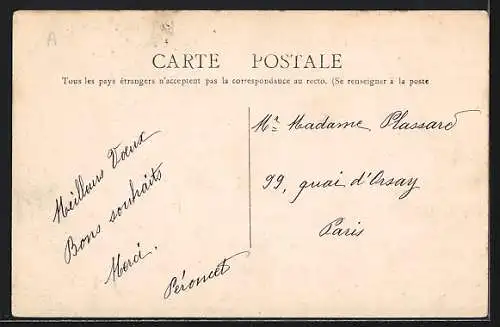 A
CARTE POSTALE
Tous les pays étrangers n'acceptent pas la correspondance au recto. (Se renseigner à la poste
Meilleurs Vœux
Bons souhaits
Merci.
Péronnet
Mr. Madame Plassard
99, quai d'Orsay
Paris